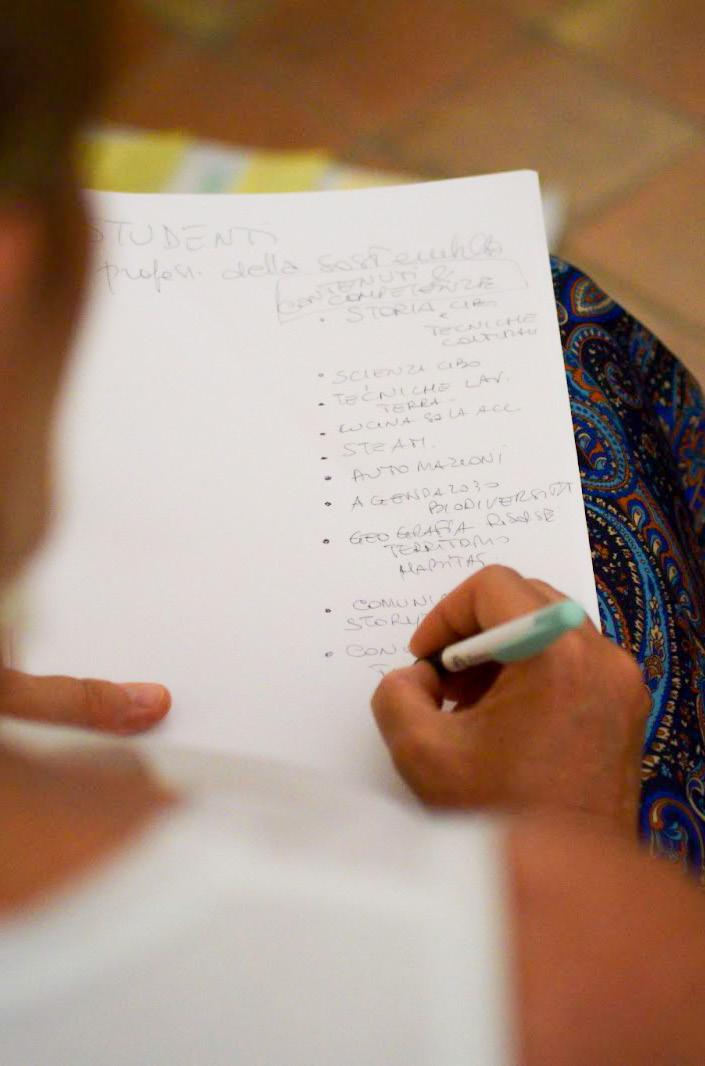 STUDENTI
profess. della sostenibilità
CONTENUTI E
COMPETENZE
• STORIA CIBO
E
TECNICHE
COLTURALI
• SCIENZA CIBO
• TECNICHE LAV.
TERRA
• CUCINA
• STEAM.
• AUTOMAZIONI
• AGENDA 2030
BIODIVERSITÀ
• GEOGRAFIA RISORSE
TERRITORIO
HABITAT
• COMUNI
STORY
• CON